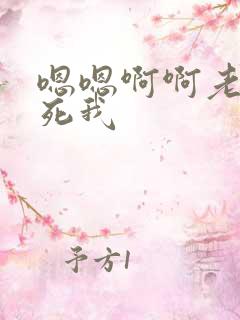 嗯嗯啊啊老
死我
予方1